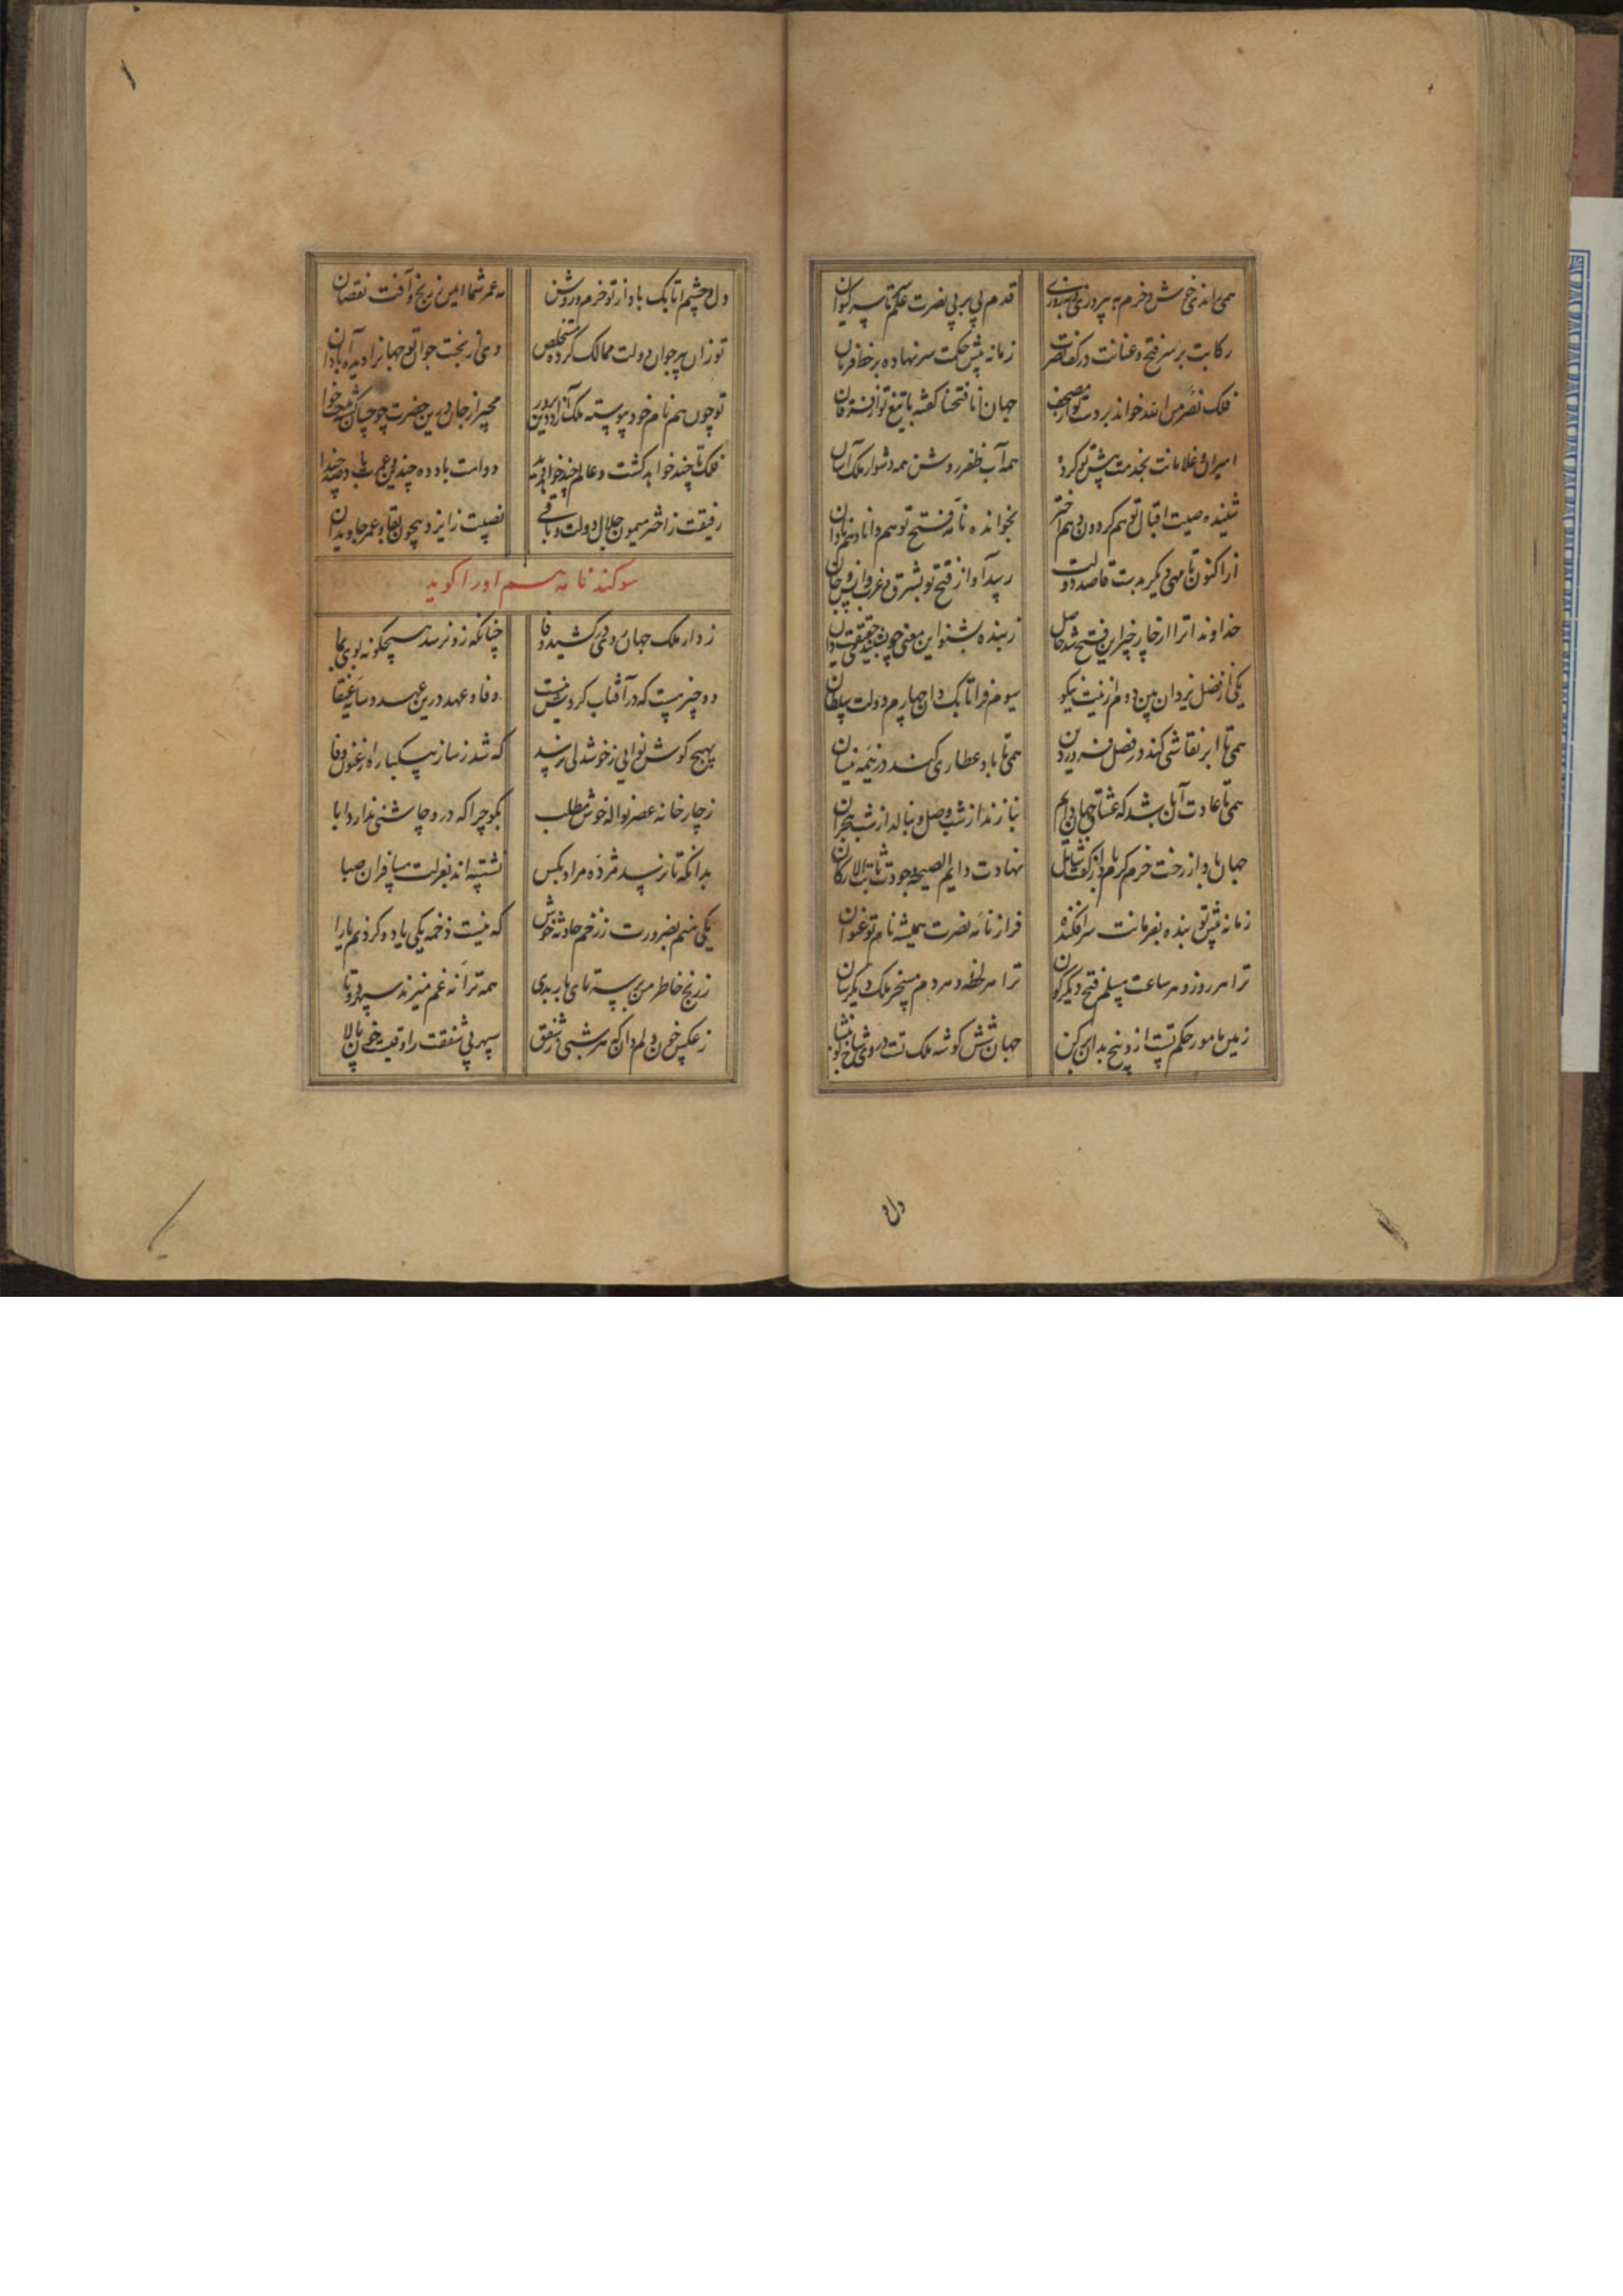 همی راند خوش و خرم به پیروزی و بهروزی قدم پی بر پی نصرت علم تا سپر کیوان
رکابت بر سر فتح و عنانت در کف نصرت زمانه پیش حکمت سر نهاده بر خط فرمان
فلک نصر من الله خواند بر دست تو از مصحف جهان انا فتحنا گفته با تیغ تو از فرقان
امیران و غلامانت بخدمت پیش تو کرده همه آب ظفر روشن همه دشوار ملک آسان
شنیده صیت اقبال تو هم گردون و هم اختر بخوانده نامه فتح تو هم دانا و هم نادان
از اکنون تا مهی دیگر بدست قاصد دولت رسد آواز فتح تو بشرق و غرب و
خداوندا ترا از چار چیز این فتح شد حاصل ز بنده بشنو این معنی چو بشنیدی حقیقت دان
یکی از فضل یزدان بین دوم از نیت نیکو سیوم فر اتابک دان چهارم دولت سلطان
همی تا ابر نقاشی کند در فصل فروردین همی تا باد عطاری کند در نیمه نیسان
همی تا عادت آن باشد که عشاق جهان دایم بنازند از شب وصل و بنالد از شب هجران
جهان باد از رخت خرم کرم باد از کفت شامل نهادت دایم الصحه وجودت ثابت الارکان
زمانه پیش تو بنده بفرمانت سرافکنده فراز نامه نصرت همیشه نام تو عنوان
ترا هر روز و هر ساعت مسلم فتح دیگرگون ترا هر لحظه و هر دم مسخر ملک دیگرسان
زمین مامور حکم تست از و بیخ بدان برکن جهان شش گوشه ملک تست در وی شاخ نو بنشان
دل
دل و چشم اتابک باد از تو خرم و روشن مه عمر شما ایمن ز رنج و آفت نقصان
تو زان پیر جوان دولت ممالک کرده مستخلص وی از بخت جوان تو جهانرا دیده آبادان
تو چون هم نام خود پیوسته ملک آرا و دین پرور مجیر از جان درین حضرت چو حسان مدحت خوان
فلک تا چند خواهد گشت و عالم چند خواهد بد دوامت باد ده چندین و عمرت باد صد چندان
رفیقت ز اختر میمون جلال و دولت و باقی نصیبت ز ایزد بیچون بقا و عمر جاویدان
سوکند نامه هم او را کوید
ز دار ملک جهان روی در کشید وفا چنانکه زو نرسد هیچگونه بوی بما
دو چیز هست که در آفتاب گردش نیست وفا و عهد درین عهد و سایه عنقا
بهیچ گوش نوایی ز خوشدلی نرسد که شد ز ساز بیکباره ارغنون وفا
ز چار خانه عصر نواله خوش مطلب بگو چرا که درو چاشنی ندارد ابا
بدانکه تا نرسد مژده مراد بکس نشسته اند بعزلت مسافران صبا
یکی منم بضرورت ز زخم حادثه خوش که نیست زخمه یکی یاد و کرد نیم مارا
ز رنج خاطر من بر سه تای باربدی همه ترانه غم میزند سپهر دوتا
ز عکس خون دلم دان که هر شبی ز شفق سپهر بی شفقت راوقیست خون پالا